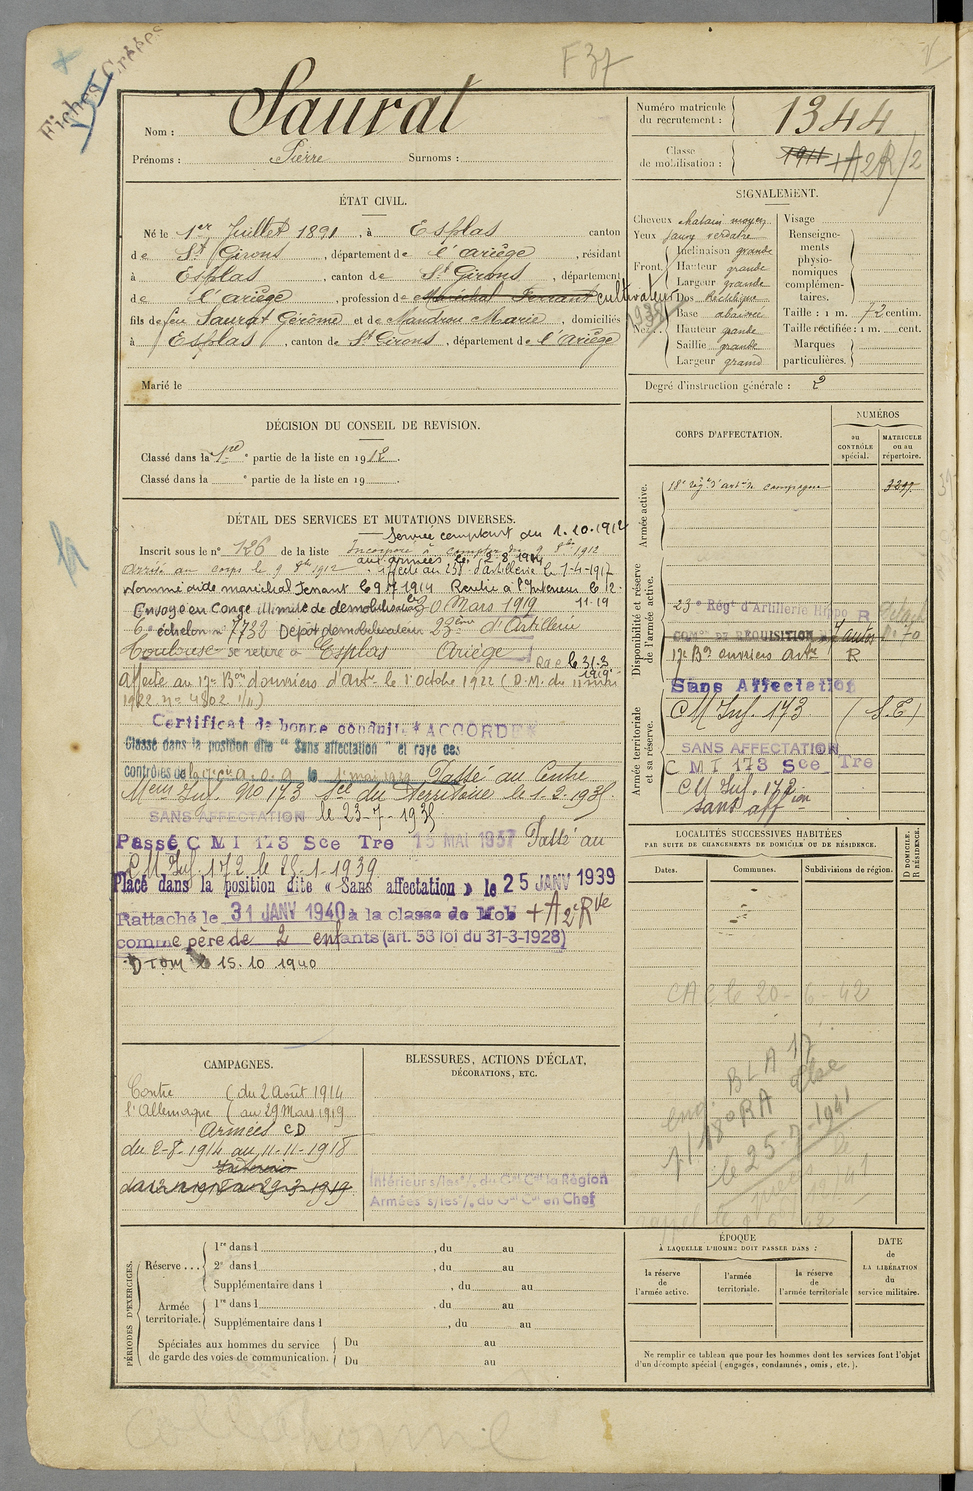 Fiches Créées
F 37
Nom : Saurat
Prénoms : Pierre Surnoms :
Numéro matricule du recrutement : 1344
Classe de mobilisation : 1911 + A 2R/2
ÉTAT CIVIL.
Né le 1er Juillet 1891, à Esplas canton
de St Girons, département de l'ariège, résidant
à Esplas, canton de St Girons, département
de l'ariège, profession de Maréchal Ferrant cultivateur
fils de feu Saurat Gérôme et de Mandrou Marie, domiciliés
à Esplas, canton de St Girons, département de l'Ariège
Marié le
SIGNALEMENT.
Cheveux chatain moyen
Yeux jaune verdatre
Front. Inclinaison grande
Hauteur grande
Largeur grande
Nez. Dos Rectiligne
Base abaissée
Hauteur grande
Saillie grande
Largeur grand
Visage
Renseignements physionomiques complémentaires.
Taille : 1 m. 72 centim.
Taille rectifiée : 1 m. cent.
Marques particulières.
Degré d'instruction générale : 2
DÉCISION DU CONSEIL DE REVISION.
Classé dans la 1re partie de la liste en 1912.
Classé dans la e partie de la liste en 19 .
DÉTAIL DES SERVICES ET MUTATIONS DIVERSES.
Service comptant du 1.10.1912
Inscrit sous le n° 126 de la liste Incorporé à compter du 9 8bre 1912
Arrivé au corps le 9 8bre 1912. aux armées le 2-8-1914 affecté au 23e d'artillerie le 1-4-1917
Nommé aide maréchal ferrant le 9 7 1914 Rentré à l'Intérieur le 12.11-19
Envoyé en Congé illimité de démobilisation le 30 Mars 1919
6e échelon n° 7732 Dépôt démobilisateur 23ème d'Artillerie
Toulouse se retire à Esplas Ariège
le 31.3 1919
Affecté au 17e Bon d'ouvriers d'Art. le 1er Octobre 1922 (D.M. du 11 mai
1922 n° 4802 1/11)
Certificat de bonne conduite "ACCORDÉ"
Classé dans la position dite "Sans affectation" et rayé des
contrôles de la 17e Cie a.o.a le 1er mai 1929 Passé au Centre
Mem Inf. No 173 Sce du Territoire le 1-2-1935
SANS AFFECTATION le 23-7-1935
Passé C M I 173 Sce Tre 15 MAI 1937 Passé au
CM Inf. 172 le 25-1-1939
Placé dans la position dite « Sans affectation » le 25 JANV 1939
Rattaché le 31 JANV 1940 à la classe de Mob + A 2e Rve
comme père de 2 enfants (art. 58 loi du 31-3-1928)
DTOM le 15.10.1940
CORPS D'AFFECTATION.
NUMÉROS
au CONTRÔLE spécial.
MATRICULE ou au répertoire.
Armée active.
18e régt d'artie de campagne 3297
Disponibilité et réserve de l'armée active.
23e Régt d'Artillerie Hippo R
COMon DE REQUISITION autos
17e Bon ouvriers artie R
Sans Affectation
Armée territoriale et sa réserve.
CM Inf. 173 (S.E)
SANS AFFECTATION
C M I 173 Sce Tre
CM Inf. 172
sans affion
LOCALITÉS SUCCESSIVES HABITÉES
PAR SUITE DE CHANGEMENTS DE DOMICILE OU DE RÉSIDENCE.
Dates. Communes. Subdivisions de région.
D DOMICILE. R RÉSIDENCE.
CAC le 20-6-42
eng. BLA 17
18e RA
le 25-7-1941
CAMPAGNES.
Contre l'Allemagne ( du 2 Août 1914
( au 29 Mars 1919
Armées CD
du 2-8-1914 au 11-11-1918
Intérieur
BLESSURES, ACTIONS D'ÉCLAT,
DÉCORATIONS, ETC.
Intérieur s/les o/. du Gal Cdt la Région
Armées s/les o/. du Gal Cdt en Chef
PÉRIODES D'EXERCICES.
Réserve ...
1re dans l , du au
2e dans l , du au
Supplémentaire dans l , du au
Armée territoriale.
1re dans l , du au
Supplémentaire dans l , du au
Spéciales aux hommes du service de garde des voies de communication.
Du au
Du au
ÉPOQUE
À LAQUELLE L'HOMME DOIT PASSER DANS :
la réserve de l'armée active.
l'armée territoriale.
la réserve de l'armée territoriale
DATE de LA LIBÉRATION du service militaire.
Ne remplir ce tableau que pour les hommes dont les services font l'objet
d'un décompte spécial (engagés, condamnés, omis, etc.).